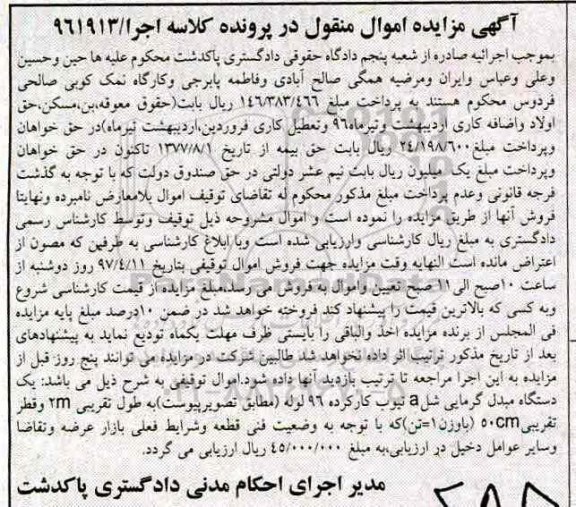 آگهی مزایده اموال منقول در پرونده کلاسه اجرا/۹۶۱۹۱۳
بموجب اجرائیه صادره از شعبه پنجم دادگاه حقوقی دادگستری پاکدشت محکوم علیه ها حین وحسین
وعلی وعباس وایران ومرضیه همگی صالح آبادی وفاطمه پابرجی وکارگاه نمک کوبی صالحی
فردوس محکوم هستند به پرداخت مبلغ ۱۴۶/۳۸۳/۴۶۶ ریال بابت(حقوق معوقه،بن،مسکن،حق
اولاد واضافه کاری اردیبهشت وتیرماه۹۶ وتعطیل کاری فروردین،اردیبهشت تیرماه)در حق خواهان
وپرداخت مبلغ۲۴/۱۹۸/۶۰۰ ریال بابت حق بیمه از تاریخ ۱۳۷۷/۸/۱ تاکنون در حق خواهان
وپرداخت مبلغ یک میلیون ریال بابت نیم عشر دولتی در حق صندوق دولت که با توجه به گذشت
فرجه قانونی وعدم پرداخت مبلغ مذکور محکوم له تقاضای توقیف اموال بلامعارض نامبرده ونهایتا
فروش آنها از طریق مزایده را نموده است و اموال مشروحه ذیل توقیف وتوسط کارشناس رسمی
دادگستری به مبلغ ریال کارشناسی وارزیابی شده است وبا ابلاغ کارشناسی به طرفهن که مصون از
اعتراض مانده است النهایه وقت مزایده جهت فروش اموال توقیفی بتاریخ ۹۷/۴/۱۱ روز دوشنبه از
ساعت ۱۰صبح الی۱۱ صبح تعیین واموال به فروش می رسد،مبلغ مزایده از قیمت کارشناسی شروع
وبه کسی که بالاترین قیمت را پیشنهاد کند فروخته خواهد شد در ضمن ۱۰درصد مبلغ پایه مزایده
فی المجلس از برنده مزایده اخذ والباقی را بایستی ظرف مهلت یکماه تودیع نماید به پیشنهادهای
بعد از تاریخ مذکور ترتیب اثر داده نخواهد شد طالبین شرکت در مزایده می توانند پنج روز قبل از
مزایده به این اجرا مراجعه تا ترتیب بازدید آنها داده شود.اموال توقیفی به شرح ذیل می باشد: یک
دستگاه مبدل گرمایی شلa تیوب کارکرده ۹۶ لوله (مطابق تصویرپیوست)به طول تقریبی ۲m وقطر
تقریبی۵۰cm (باوزن۱=تن)که با توجه به وضعیت فنی قطعه وشرایط فعلی بازار عرضه وتقاضا
وسایر عوامل دخیل در ارزیابی،به مبلغ ۴۵/۰۰۰/۰۰۰ ریال ارزیابی می گردد.
مدیر اجرای احکام مدنی دادگستری پاکدشت